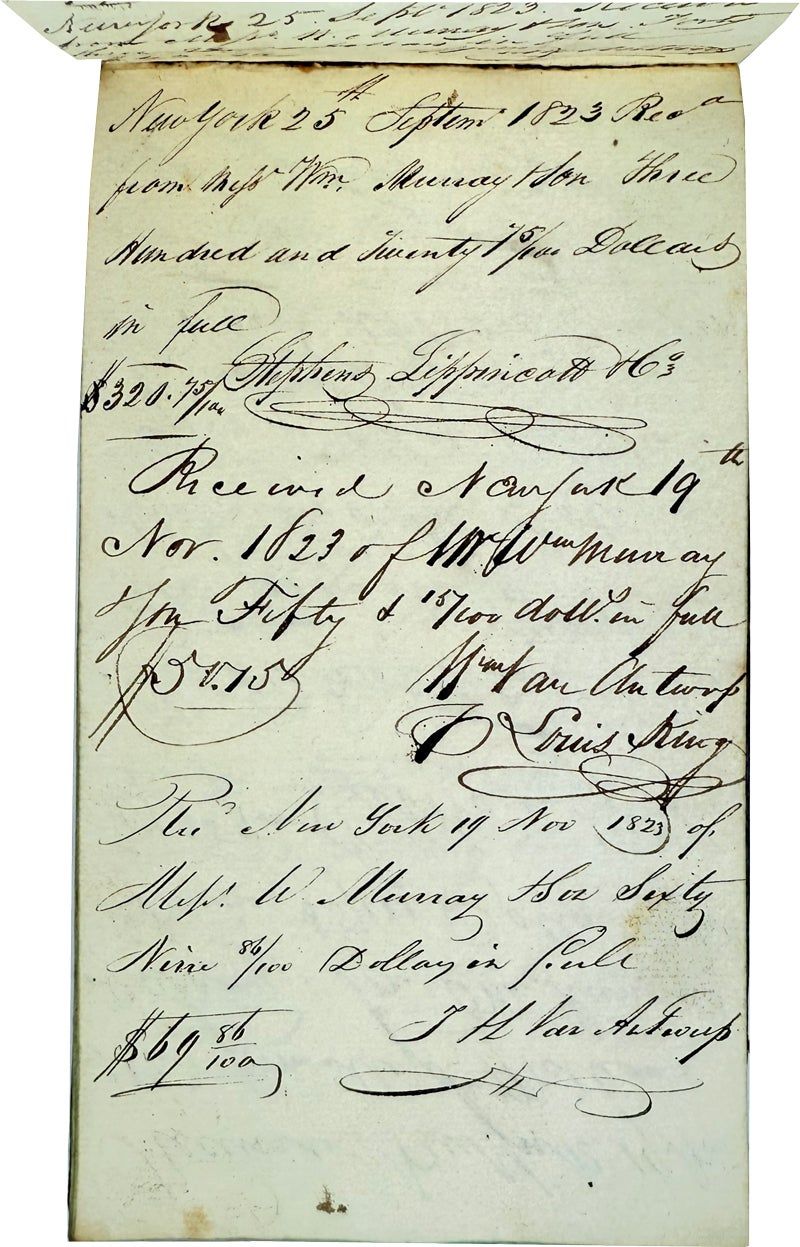 New York 25 Sept 1823. Receiv
from
New York 25th Septemr 1823 Recd
from Messrs Wm. Murray & Son Three
Hundred and Twenty 75/100 Dollars
in full
$320. 75/100 Stephens Lippincott & Co
Received New York 19th
Nov. 1823 of Mr Wm Murray
Son Fifty & 15/100 dolls. in full
$50.15 Wm Van Antwerp
Louis King
Recd New York 19 Nov 1823 of
Messrs. W Murray & Son Sixty
Nine 86/100 Dollars in full
$69 86/100 J H Van Antwerp